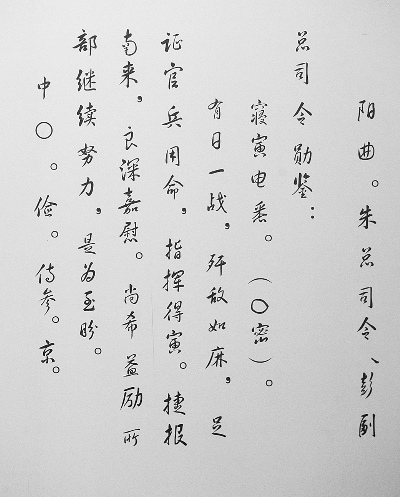 阳曲。朱总司令、彭副
总司令勋鉴：
寝寅电悉。（〇密）。
有日一战，歼敌如麻，足
证官兵用命，指挥得寅。捷报
南来，良深嘉慰。尚希益励所
部继续努力，是为至盼。
中〇。俭。侍参。京。